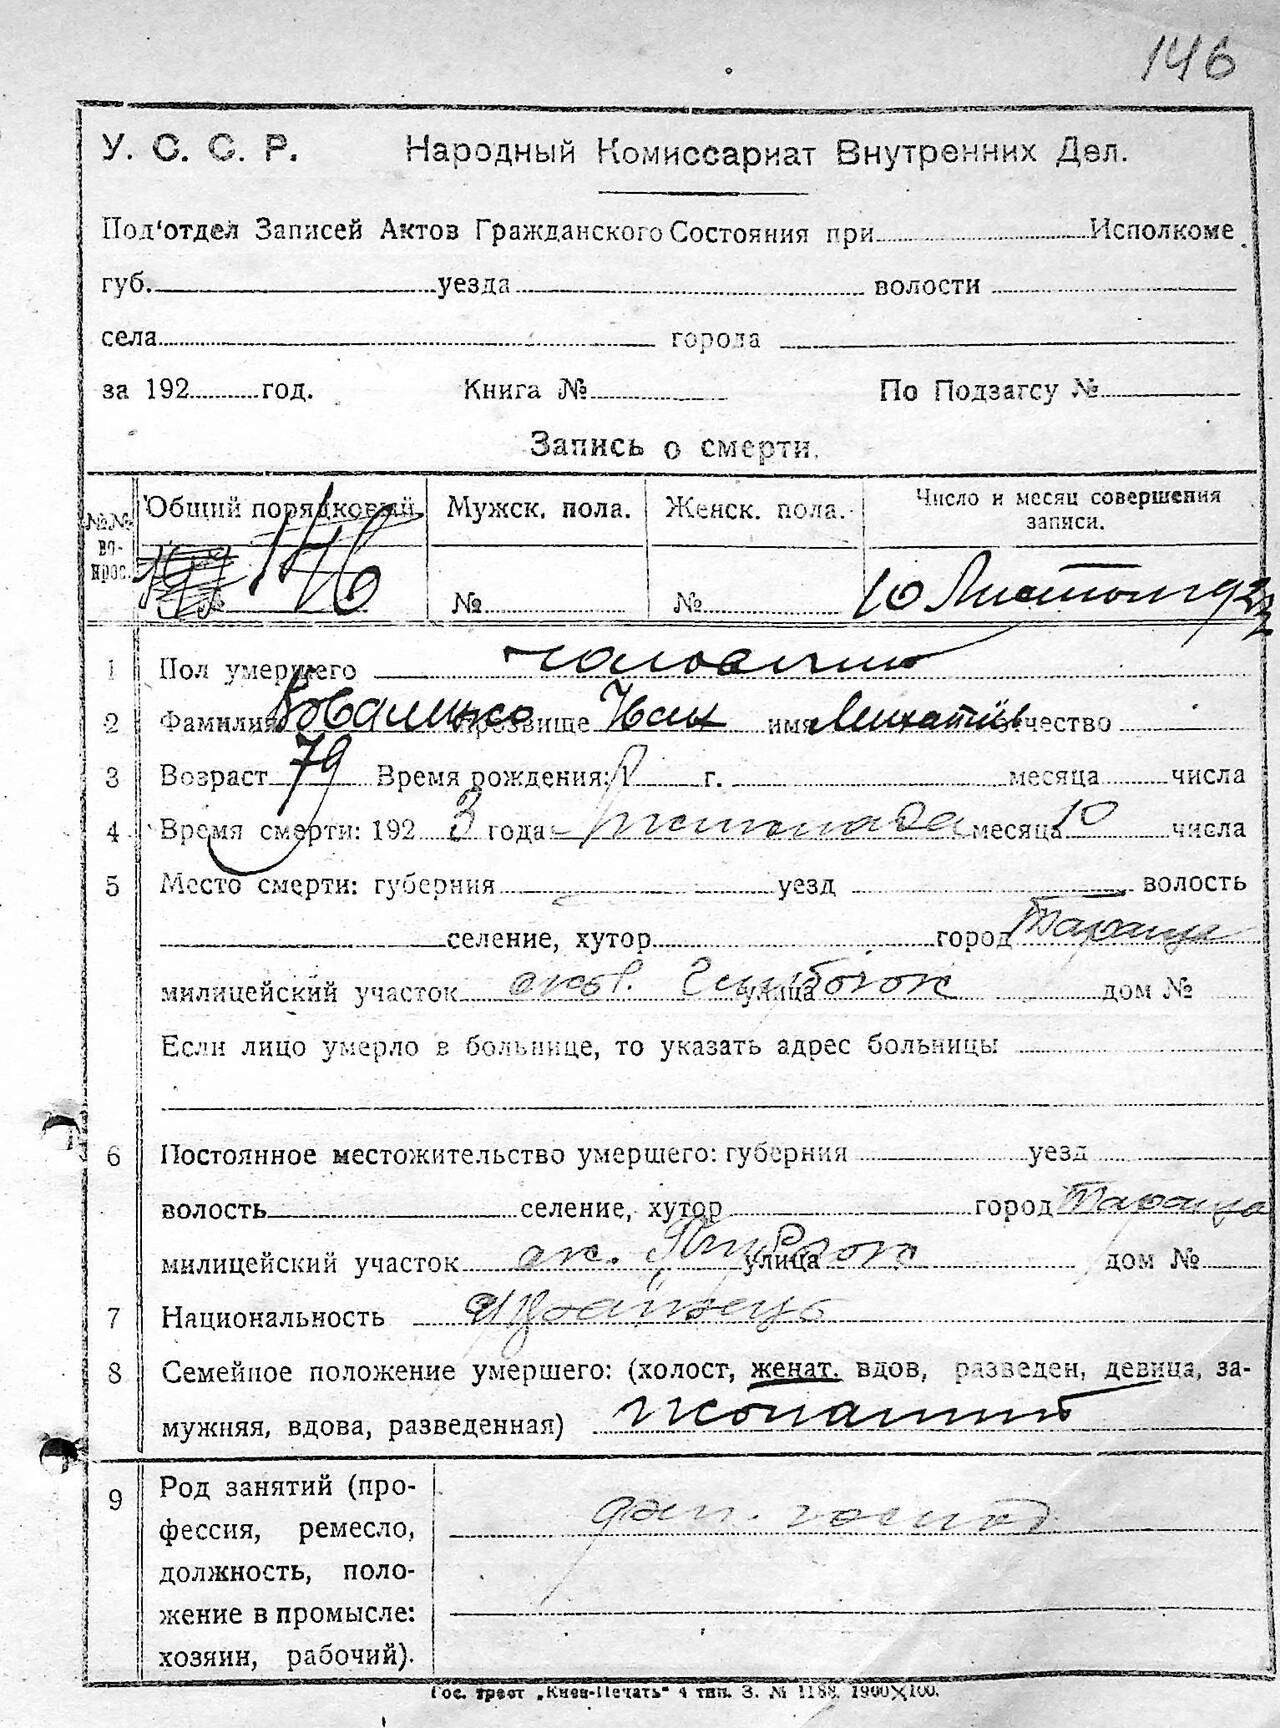 146
У. С. С. Р. Народный Комиссариат Внутренних Дел.
Под'отдел Записей Актов Гражданского Состояния при Исполкоме
губ. уезда волости
села города
за 192 год. Книга № По Подзагсу №
Запись о смерти.
№№ во- прос. Общий порядковый. Мужск. пола. Женск. пола. Число и месяц совершения записи.
146 № № 10 Листоп 1923
1 Пол умершего чоловичий
2 Фамилия Коваленко Прозвище Иван имя Михайлов отчество
3 Возраст 79 Время рождения: 1 г. месяца числа
4 Время смерти: 192 3 года Листопада месяца 10 числа
5 Место смерти: губерния уезд волость
селение, хутор город Тараща
милицейский участок улица дом №
Если лицо умерло в больнице, то указать адрес больницы
6 Постоянное местожительство умершего: губерния уезд
волость селение, хутор город Тараща
милицейский участок улица дом №
7 Национальность Украінець
8 Семейное положение умершего: (холост, женат, вдов, разведен, девица, за-
мужняя, вдова, разведенная) жонатий
9 Род занятий (про-
фессия, ремесло,
должность, поло-
жение в промысле:
хозяин, рабочий).
Гос. трест „Киев-Печать" 4 тип. З. № 1188. 1900×100.